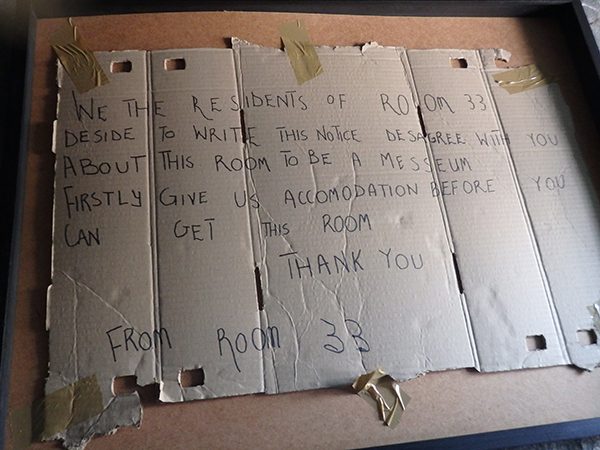 WE THE RESIDENTS OF ROOM 33
DESIDE TO WRITE THIS NOTICE DESAGREE WITH YOU
ABOUT THIS ROOM TO BE A MESSEUM
FIRSTLY GIVE US ACCOMODATION BEFORE YOU
CAN GET THIS ROOM
THANK YOU
FROM ROOM 33